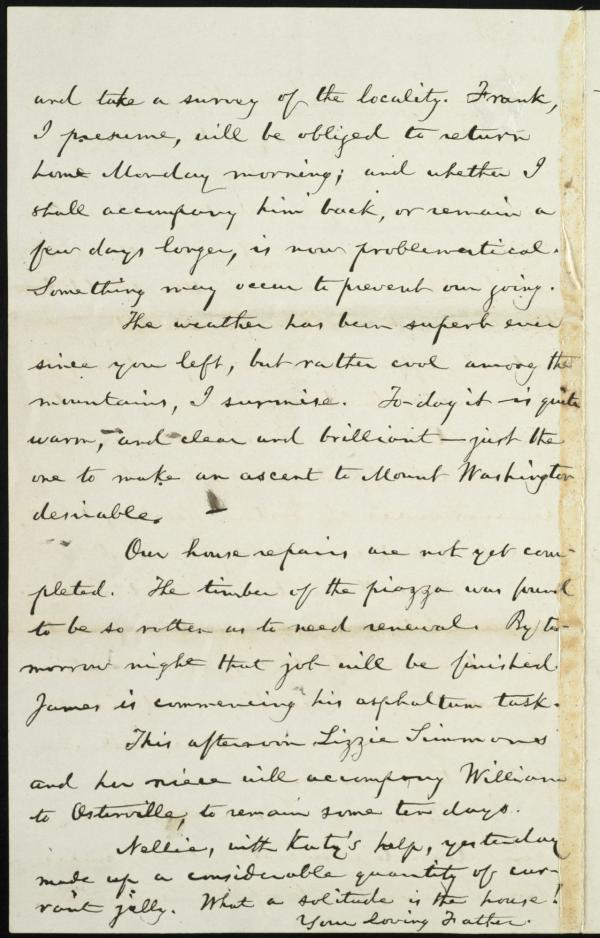 and take a survey of the locality. Frank,
I presume, will be obliged to return
home Monday morning; and whether I
shall accompany him back, or remain a
few days longer, is now problematical.
Something may occur to prevent our going.
The weather has been superb ever
since you left, but rather cool among the
mountains, I surmise. To-day it is quite
warm, and clear and brilliant—just the
one to make an ascent to Mount Washington
desirable.
Our house repairs are not yet com-
pleted. The timber of the piazza was found
to be so rotten as to need renewal. By to-
morrow night that job will be finished.
James is commencing his asphaltum task.
This afternoon Lizzie Simmons
and her niece will accompany William
to Osterville, to remain some ten days.
Nellie, with Katy's help, yesterday
made up a considerable quantity of cur-
rant jelly. What a solitude is the house!
Your loving Father.